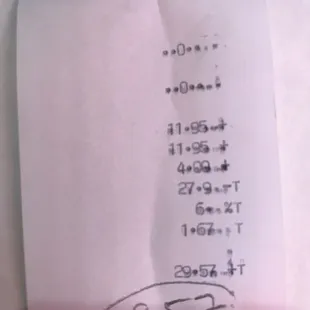 ..0....
..0....
11.95 +
11.95 +
4.00 +
27.9 T
6 %T
1.67 T
29.57 +T
9.57